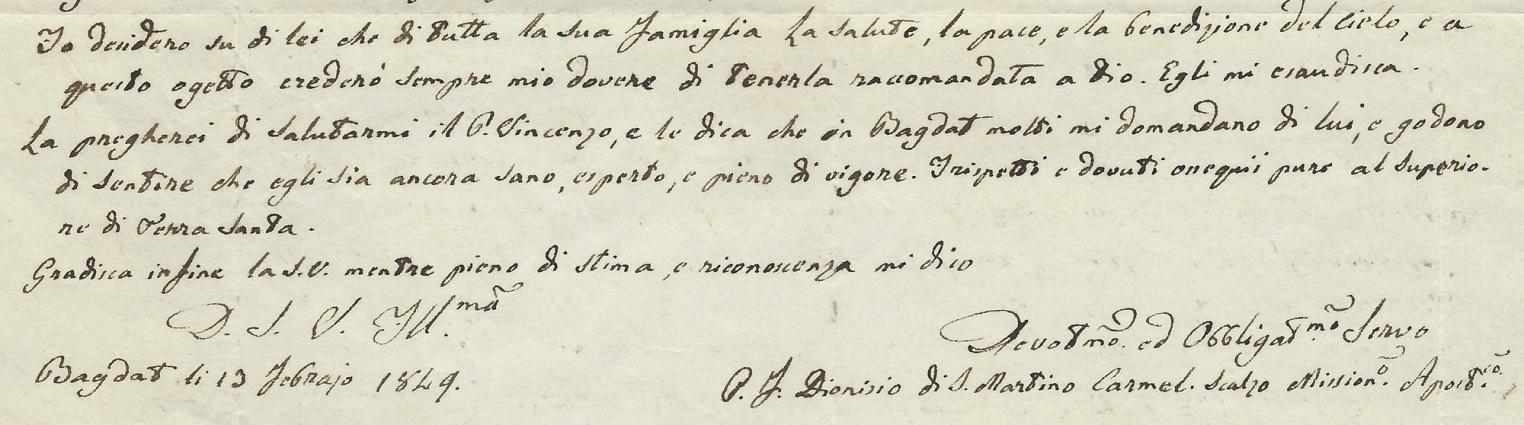 Io desidero su di lei che di tutta la sua famiglia la salute, la pace, e la benedizione del Cielo, e a
questo ogetto crederó sempre mio dovere di tenerla raccomandata a Dio. Egli mi esaudisca.
La pregherei di salutarmi il P. Vincenzo, e le dica che in Bagdat molti mi domandano di lui, e godono
di sentire che egli sia ancora sano, esperto, e pieno di vigore. I rispetti e dovuti ossequii pure al Superio-
re di Terra Santa.
Gradisca infine la S.V. mentre pieno di stima, e riconoscenza mi dico
D. S. V. Ill.ma
Devotmo. ed Obbligat.mo Servo
Bagdat li 13 Febrajo 1849.
P. F. Dionisio di S. Martino Carmel. Scalzo Mission.o Apost.co